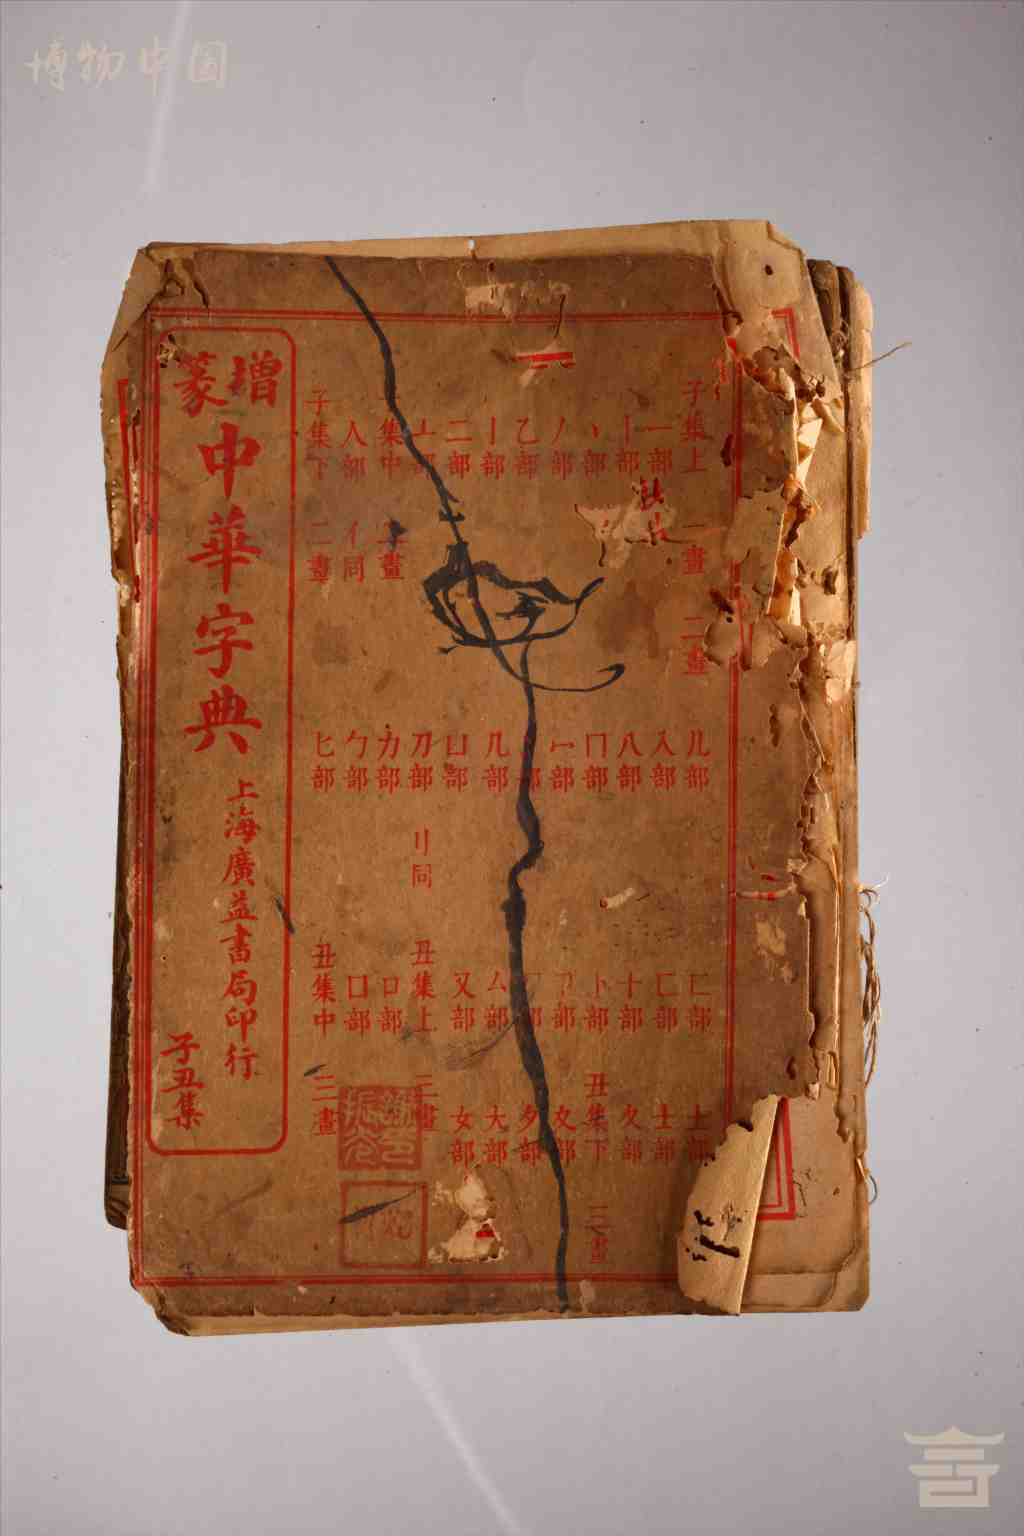 博物中国
增篆
中華字典
上海廣益書局印行
子丑集
子集上 一畫 二畫
一部
丨部
丶部
丿部
乙部
亅部
二部
亠部
集中 二畫
人部 亻同
子集下 二畫
儿部
入部
八部
冂部
冖部
几部
凵部
刀部 刂同
力部
勹部
匕部
匚部
匸部
十部
卜部
卩部
厂部
厶部
又部
丑集上 三畫
口部
囗部
丑集中 三畫
土部
士部
夂部
丑集下 三畫
夊部
夕部
大部
女部